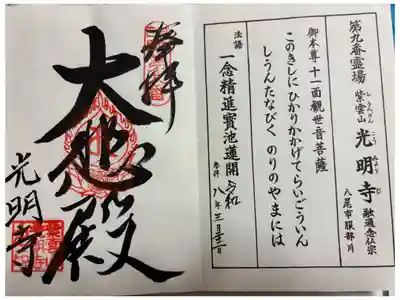 第九番霊場
紫雲山 光明寺 融通念仏宗
しうんざん こうみょうじ
八尾市服部川
御本尊 十一面観世音菩薩
このきしにひかりかかげてらいごういん
しうんたなびく のりのやまには
法語 一念精進寳池蓮開
参拝 令和八年三月
奉拝
大悲殿
光明寺